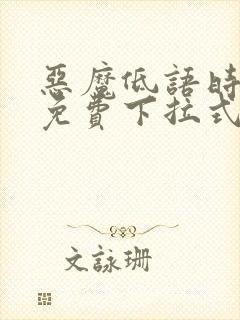 惡魔低語時
免費下拉式
文詠珊